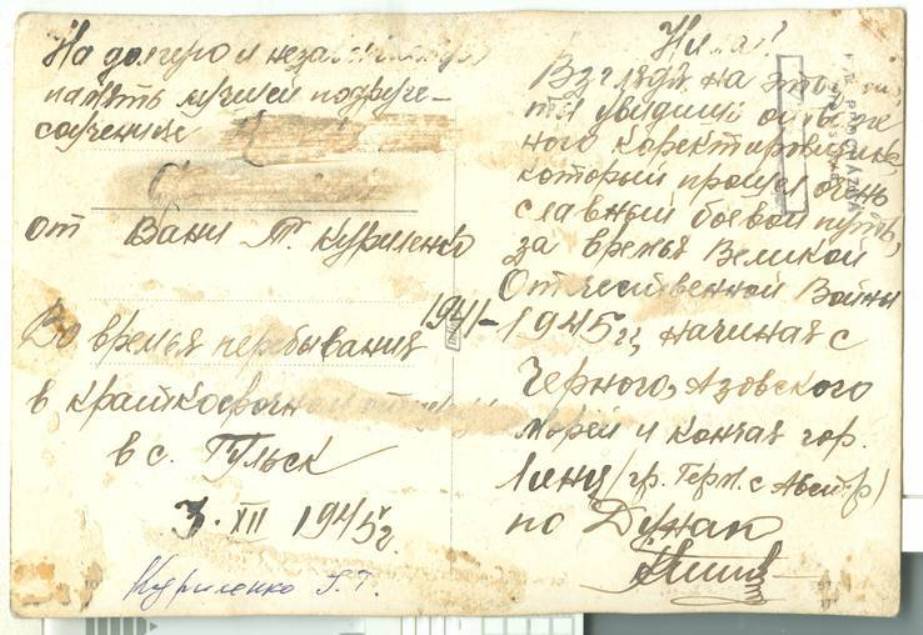 На долгую и незабываемую
память лучшей подруге-
соученице
от Вани Т. Куриленко
Во время перебывания
в краткосрочном
в с. Гульск
3. XII 1945 г.
Куриленко І. Т.
Нила!
Взглядя на это
ты увидиш
ного коректировщика,
который прошел очень
славный боевой путь,
за времья Великой
Отечественной Войны
1941-1945 гг, начиная с
Черного, Азовского
морей и кончая гор.
Линц (гр. Герм. с Австр)
по Дунаю